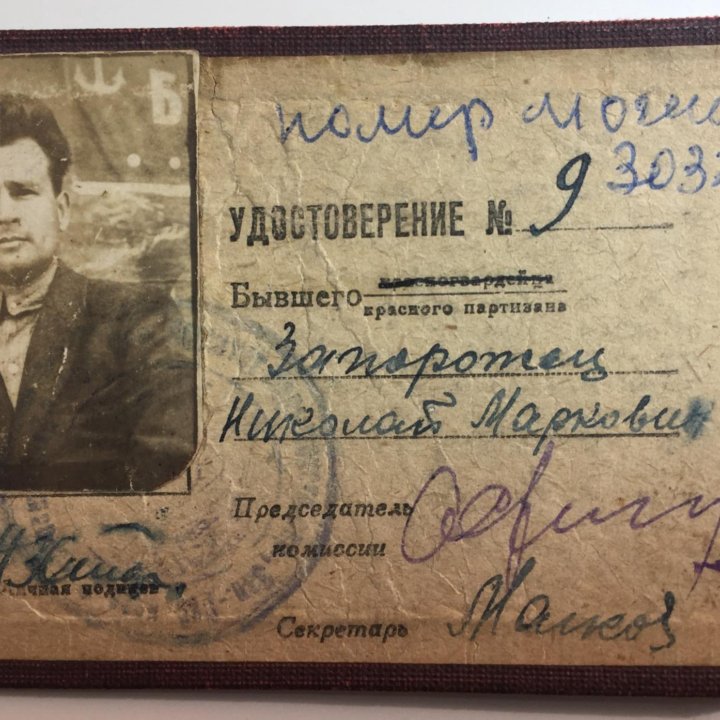 номер моги
9 3033
УДОСТОВЕРЕНИЕ №
Бывшего красногвардейца
красного партизана
Запорожец
Николай Маркович
Председатель
комиссии
Личная подпись
Секретарь